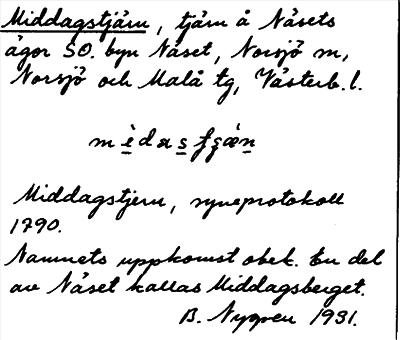 Middagstjärn, tjärn å Näsets
ägor SO. byn Näset, Norsjö sn,
Norsjö och Malå tg, Västerb. l.
Middagstjern, syneprotokoll
1790.
Namnets uppkomst obek. En del
av Näset kallas Middagsberget.
B. Nygren 1931.